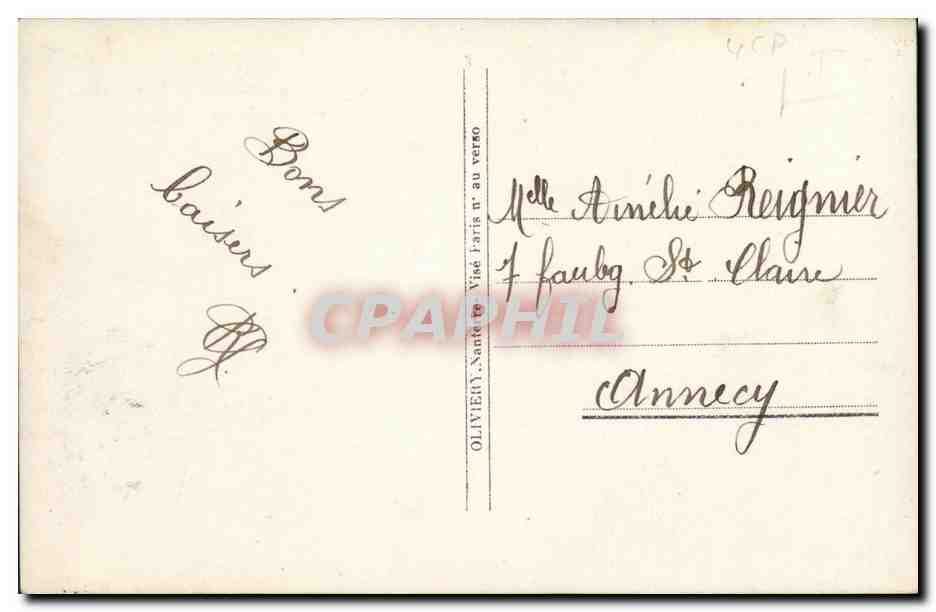 Bons
baisers
OLIVIERY, Nanterre, Visé Paris n° au verso
Melle Amélie Reignier
7 faubg. Ste Claire
Annecy
CPAPHIL